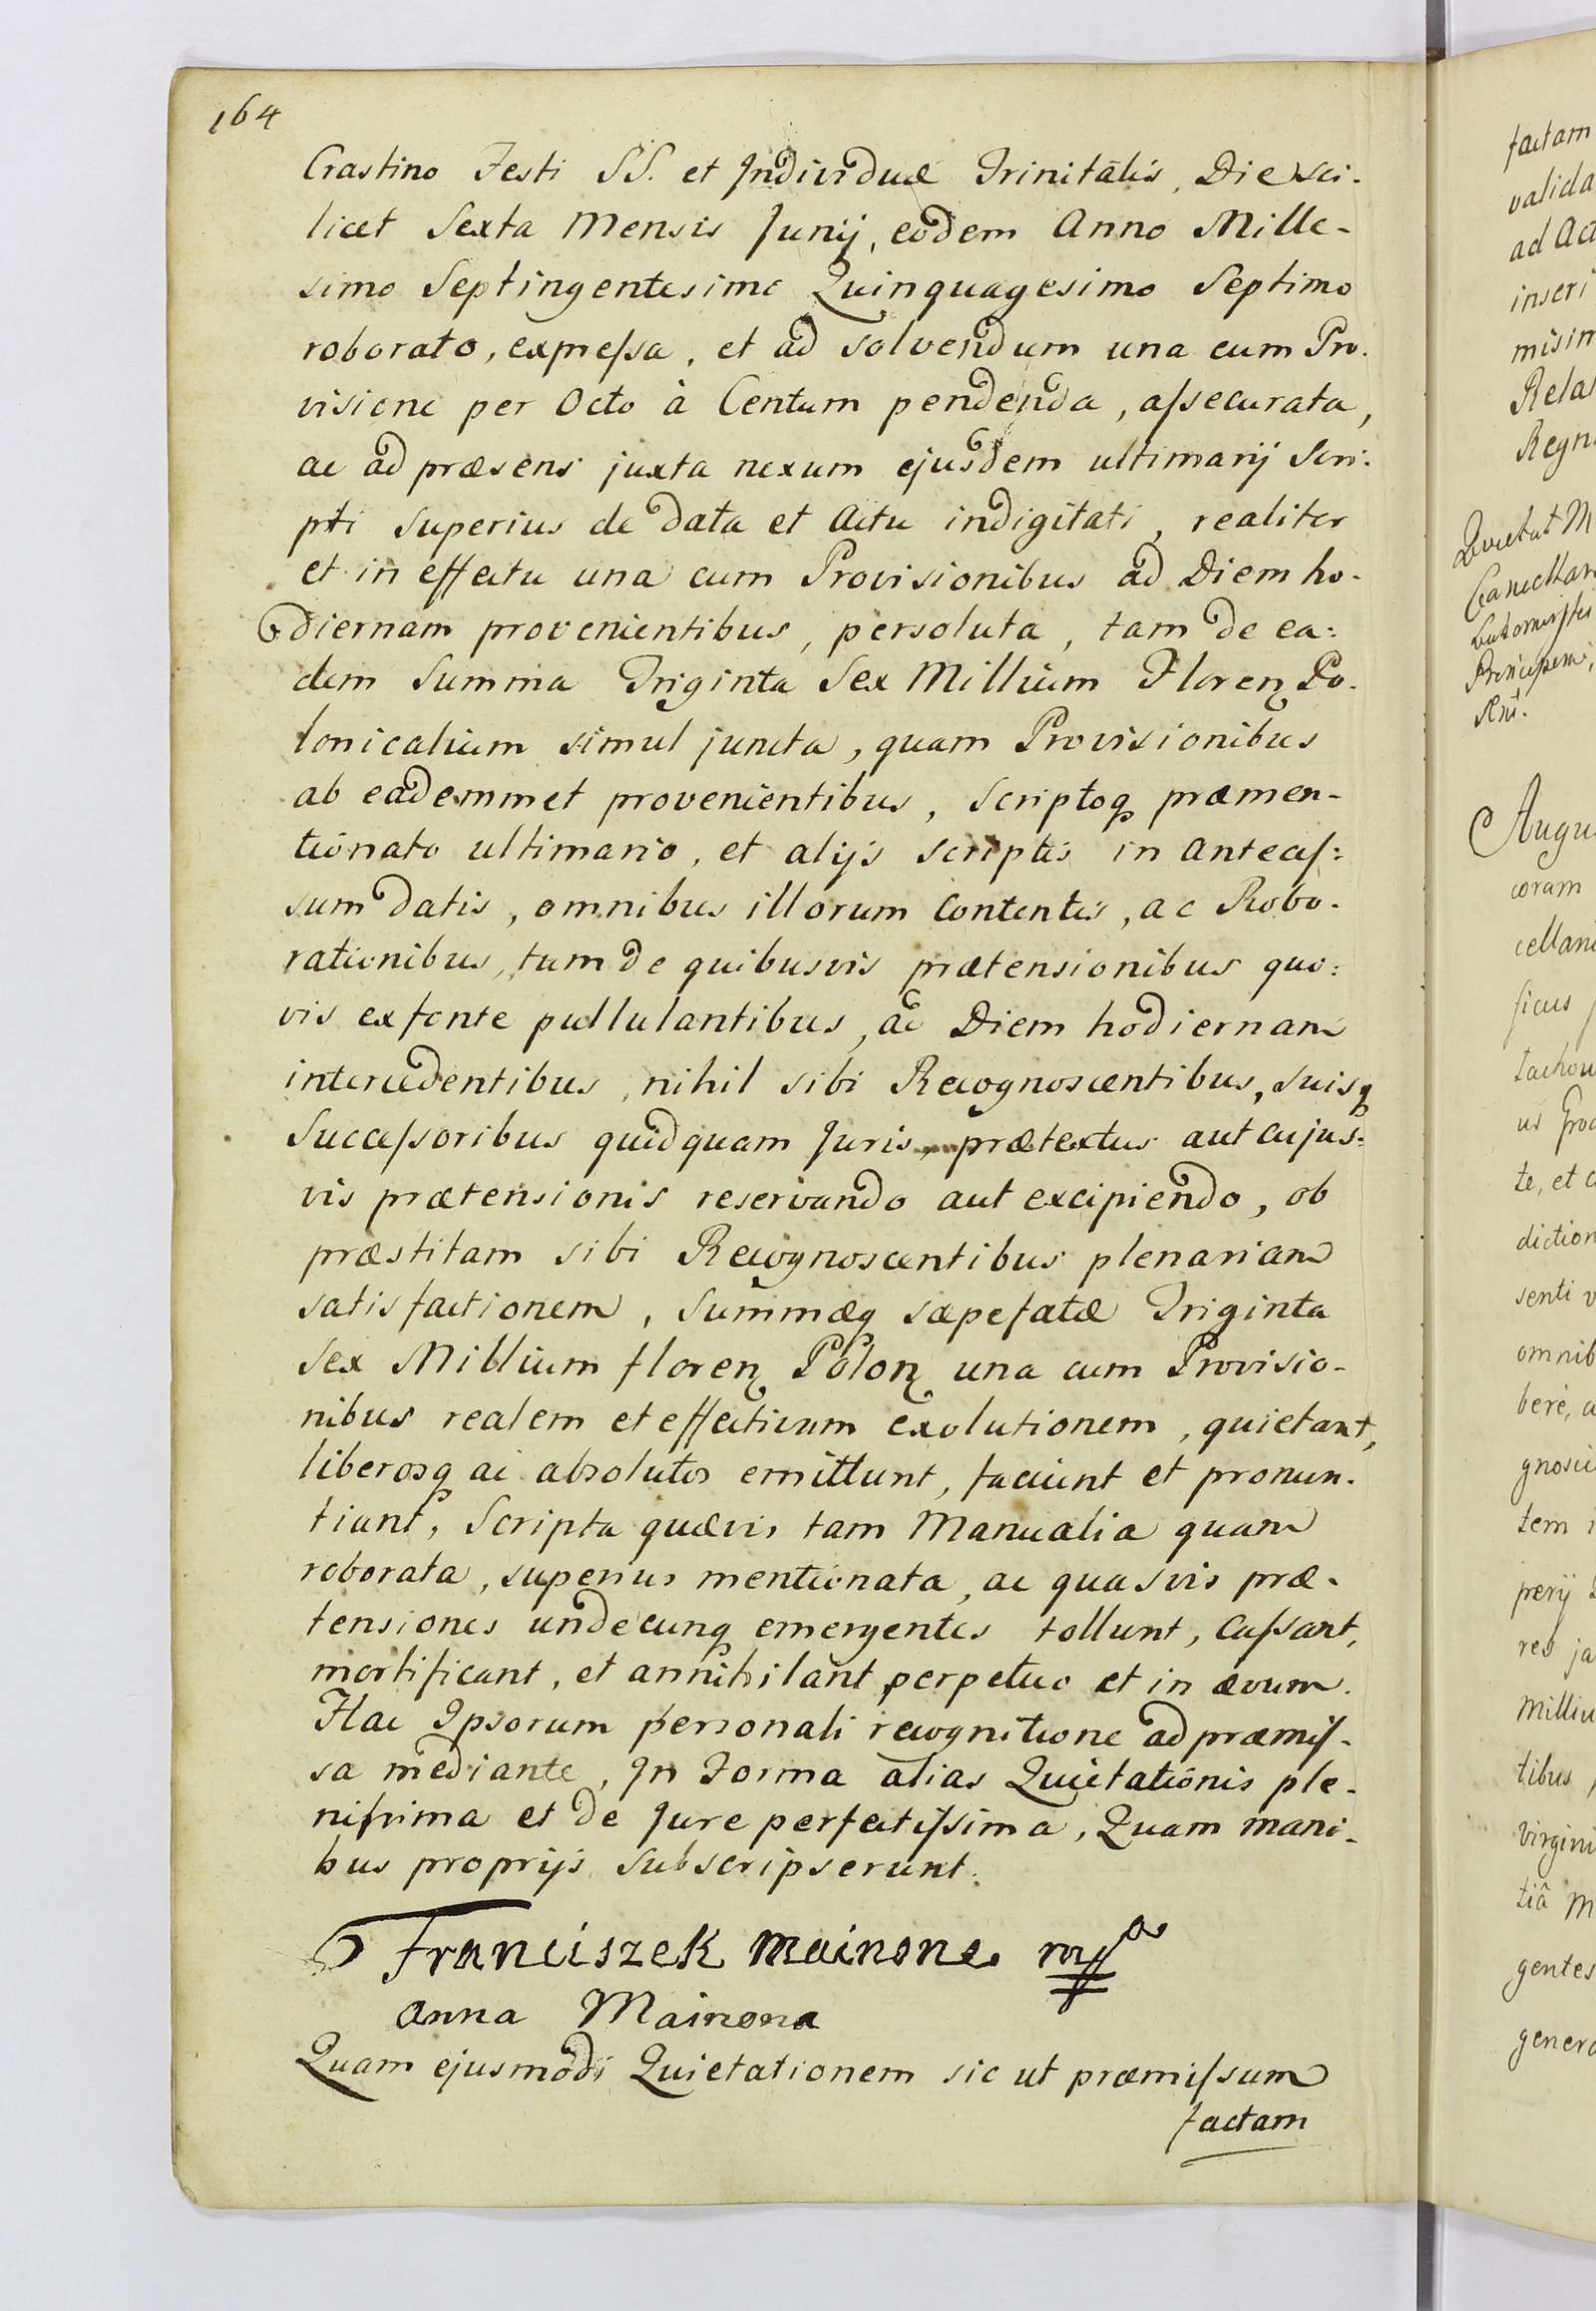 164
Crastino Festi SS. et Individuæ Trinitatis, Die sci-
licet Sexta Mensis Junij, eodem Anno Mille-
simo Septingentesimo Quinquagesimo Septimo
roborato, expreſsa, et ad solvendum una cum Pro-
visione per Octo à Centum pendenda, aſsecurata,
ac ad præsens juxta nexum ejusdem ultimarij Scri-
pti superius de data et Actu indigitati, realiter
et in effectu una cum Provisionibus ad Diem ho-
diernam provenientibus, persoluta, tam de ea:
dem Summa Triginta Sex Millium Floren Po-
lonicalium simul juncta, quam Provisionibus
ab eademmet provenientibus, Scriptoq præmen-
tionato ultimario, et alijs scriptis in anteceſ:
sum datis, omnibus illorum Contentis, ac Robo-
rationibus, tum de quibusvis prætensionibus quo:
vis ex fonte pullulantibus, ac Diem hodiernam
intercedentibus, nihil sibi Recognoscentibus, suisq
Succeſsoribus quidquam Juris, prætextus aut cujus:
vis prætensionis reservando aut excipiendo, ob
præstitam sibi Recognoscentibus plenariam
satisfactionem, Summæq sæpefatæ Triginta
Sex Millium floren Polon una cum Provisio-
nibus realem et effectivam exolutionem, quietant,
liberosq ac absolutos emittunt, faciunt et pronun-
tiant, Scripta quævis tam Manualia quam
roborata, superius mentionata, ac quasvis præ-
tensiones undecunq emergentes tollunt, Caſsant,
mortificant, et annihilant perpetuo et in ævum.
Hac Ipsorum personali recognitione ad præmiſ-
sa mediante, In Forma alias Quietationis ple-
niſsima et de Jure perfectiſsima, Quam mani-
bus proprijs subscripserunt.
Franciszek Mainone mpa
Anna Mainona
Quam ejusmodi Quietationem sic ut præmiſsum
factam
factam
valida
ad Ac
inseri
misim
Rela
Regn
Quietat M
Principem,
Augu
coram
cellan
ficus
te, et
diction
senti v
omnib
gnosci
tem
res ja
Milliu
tibus
virgini
tiâ M
gentes
genera